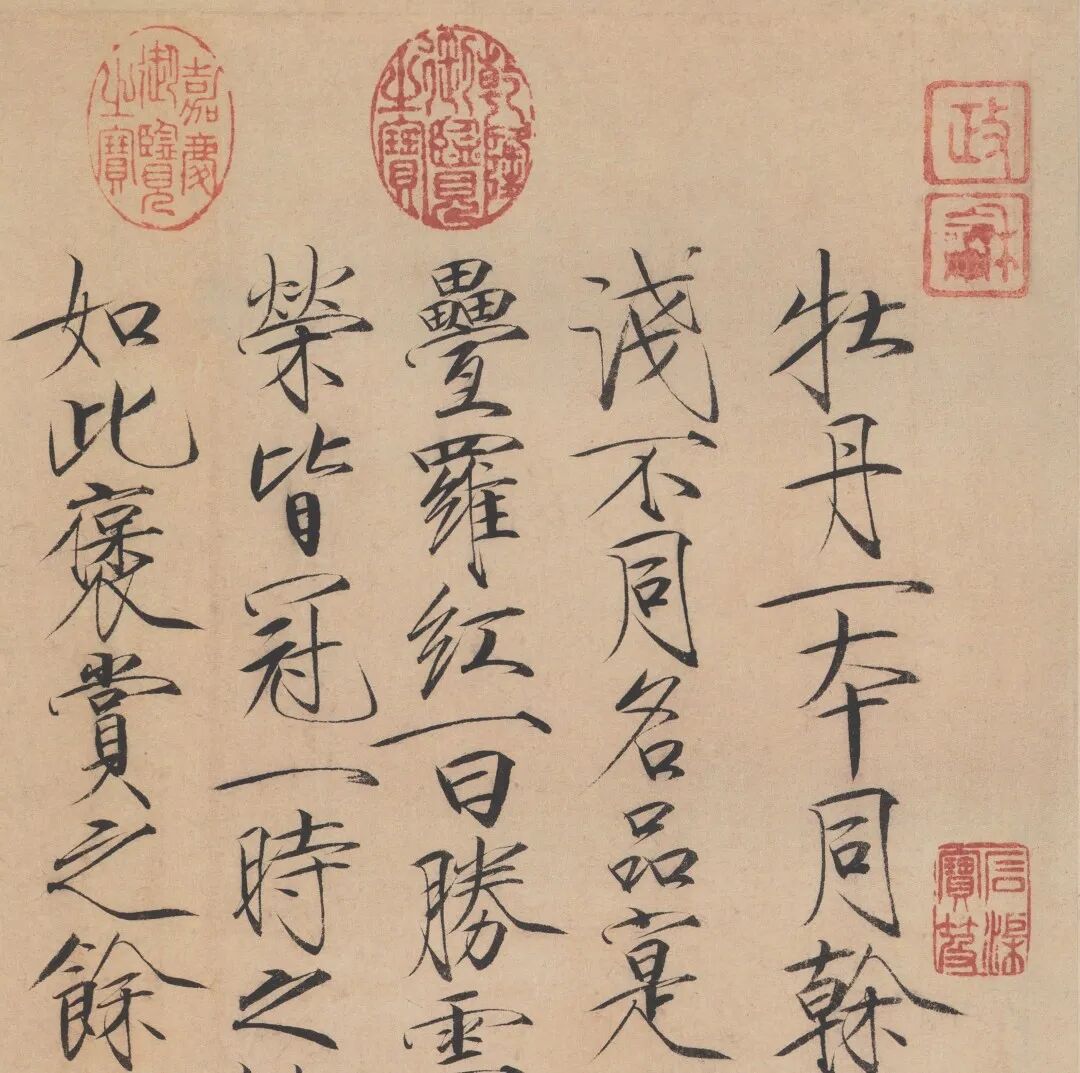 政龢
牡丹一本同榦
淺不同名品寔
乾隆御覽之寶
疊羅紅一曰勝雲
榮皆冠一時之
嘉慶御覽之寶
如此褒賞之餘